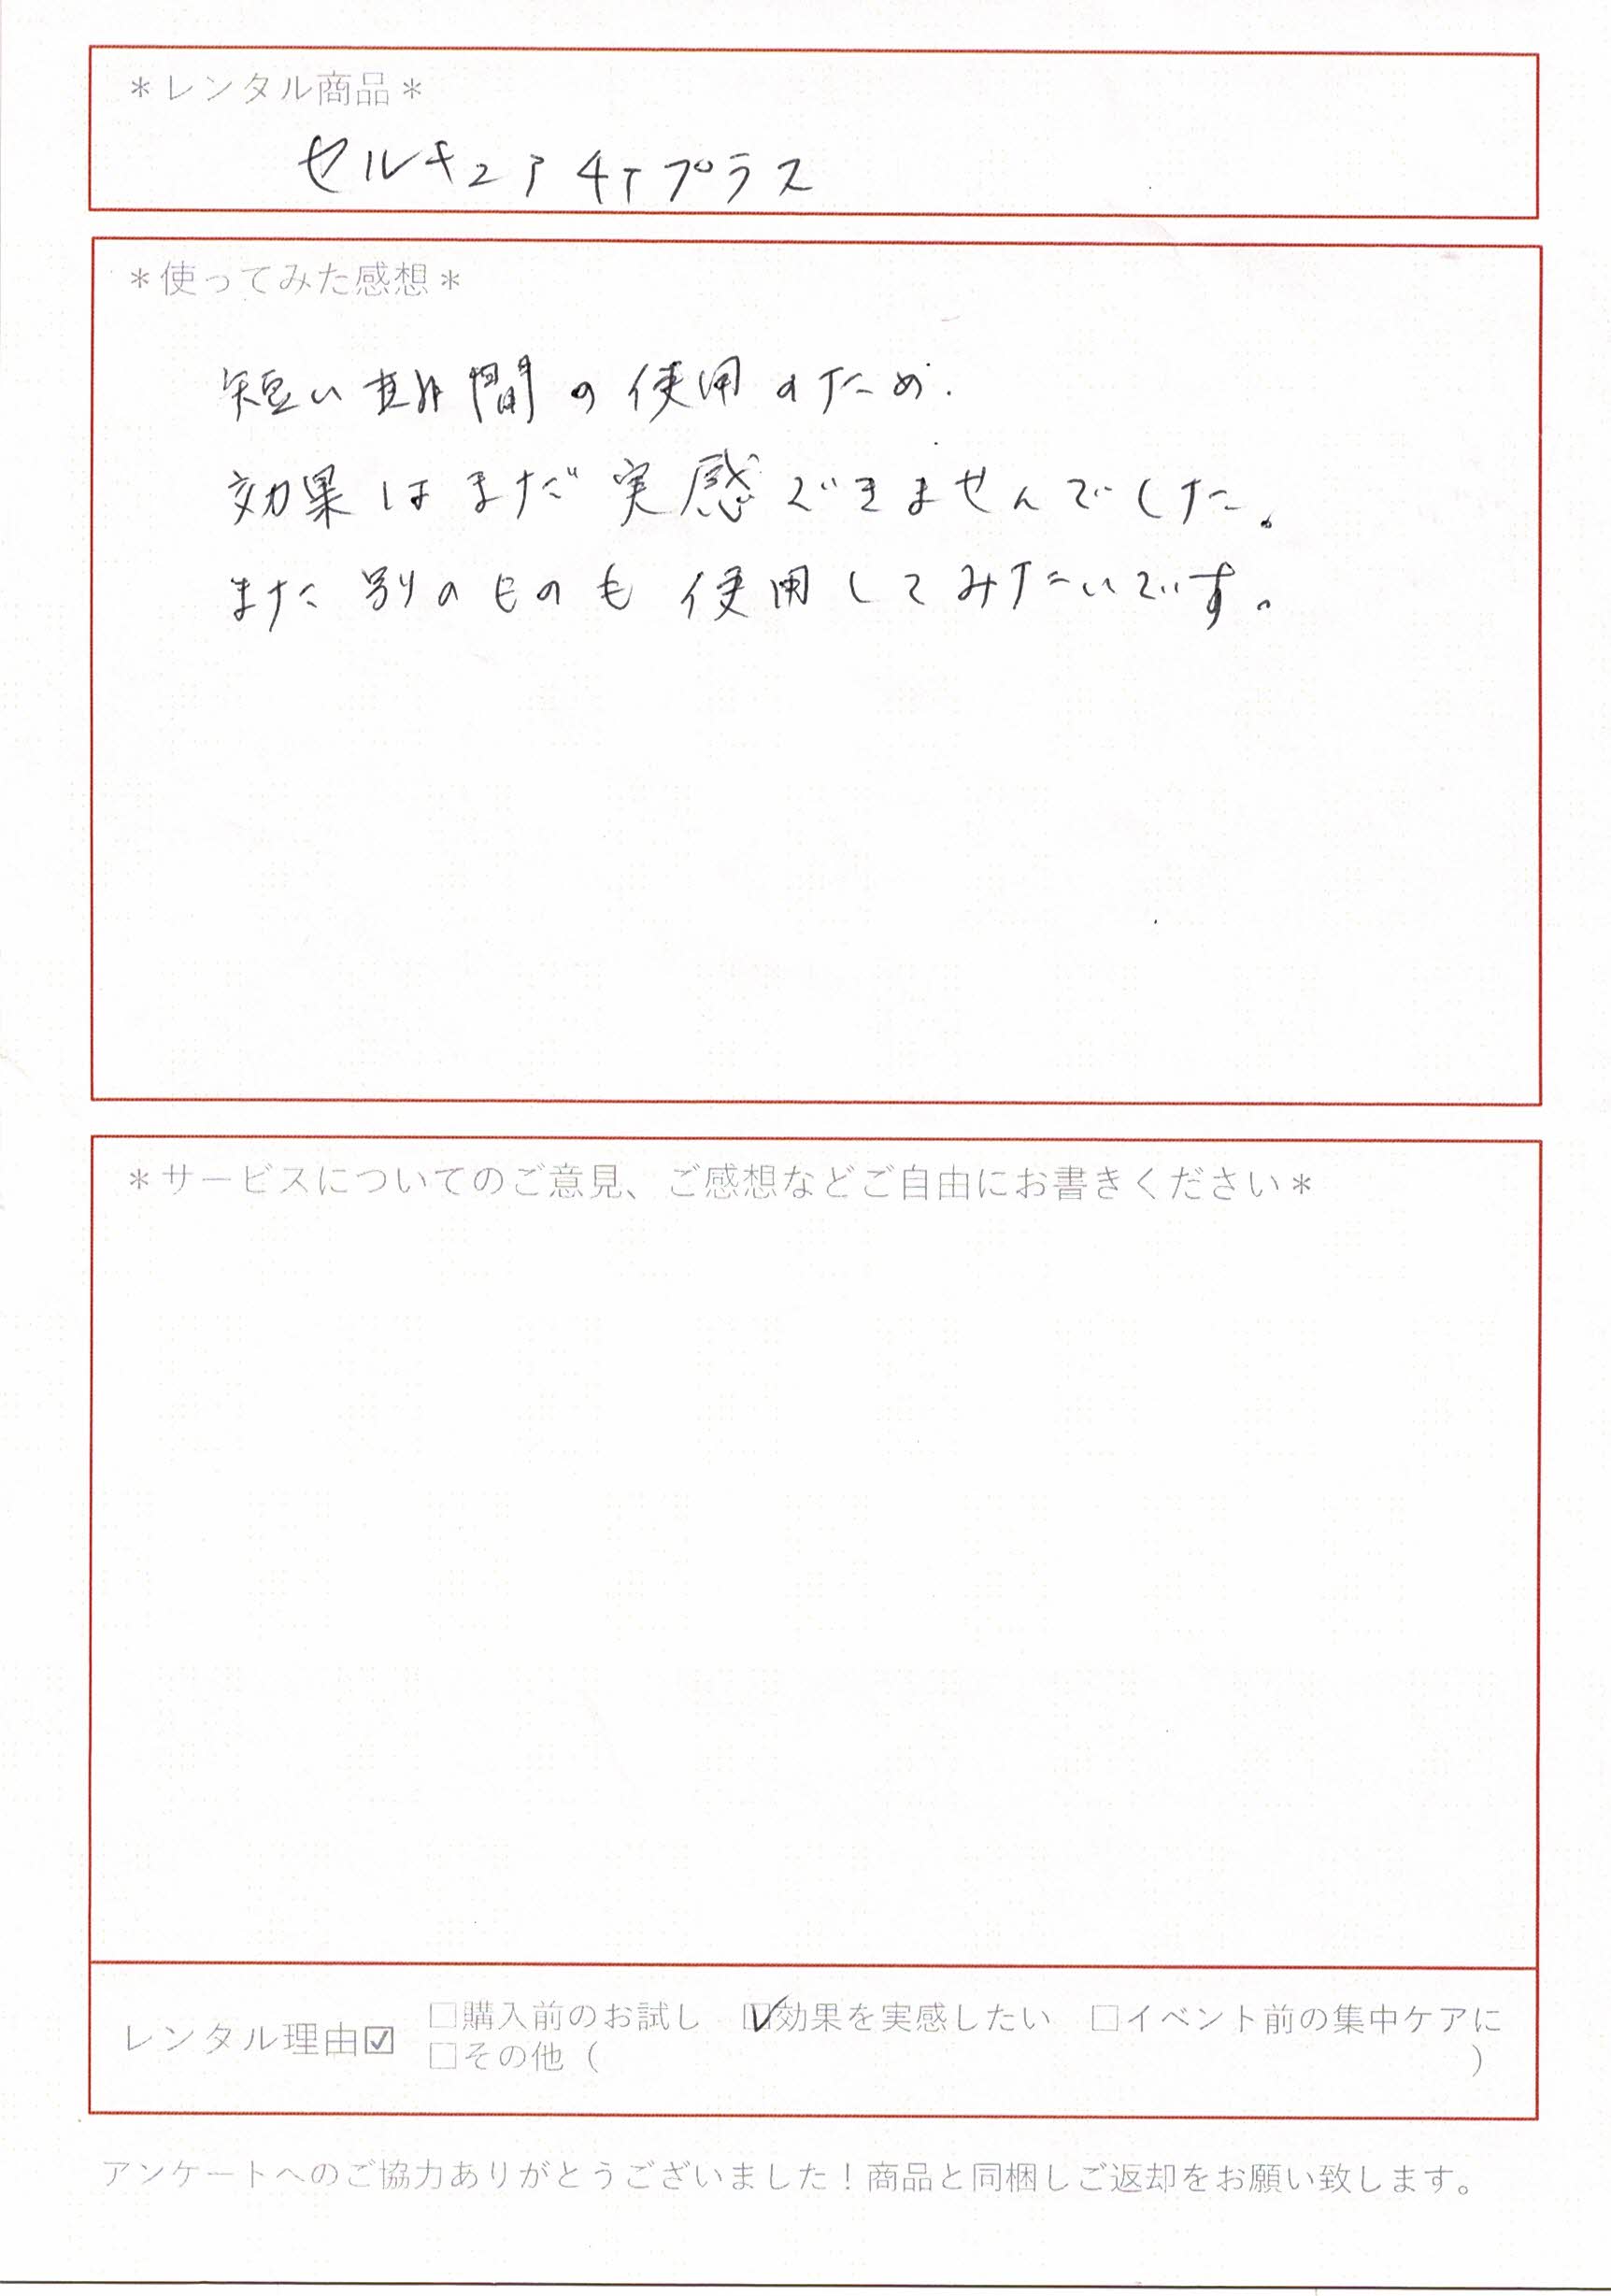 ＊レンタル商品＊
セルキュア4Tプラス
＊使ってみた感想＊
短い期間の使用のため.
効果はまだ実感できませんでした。
また別のものも使用してみたいです。
＊サービスについてのご意見、ご感想などご自由にお書きください＊
レンタル理由☑ □購入前のお試し ☑効果を実感したい □イベント前の集中ケアに
□その他（ ）
アンケートへのご協力ありがとうございました！商品と同梱しご返却をお願い致します。